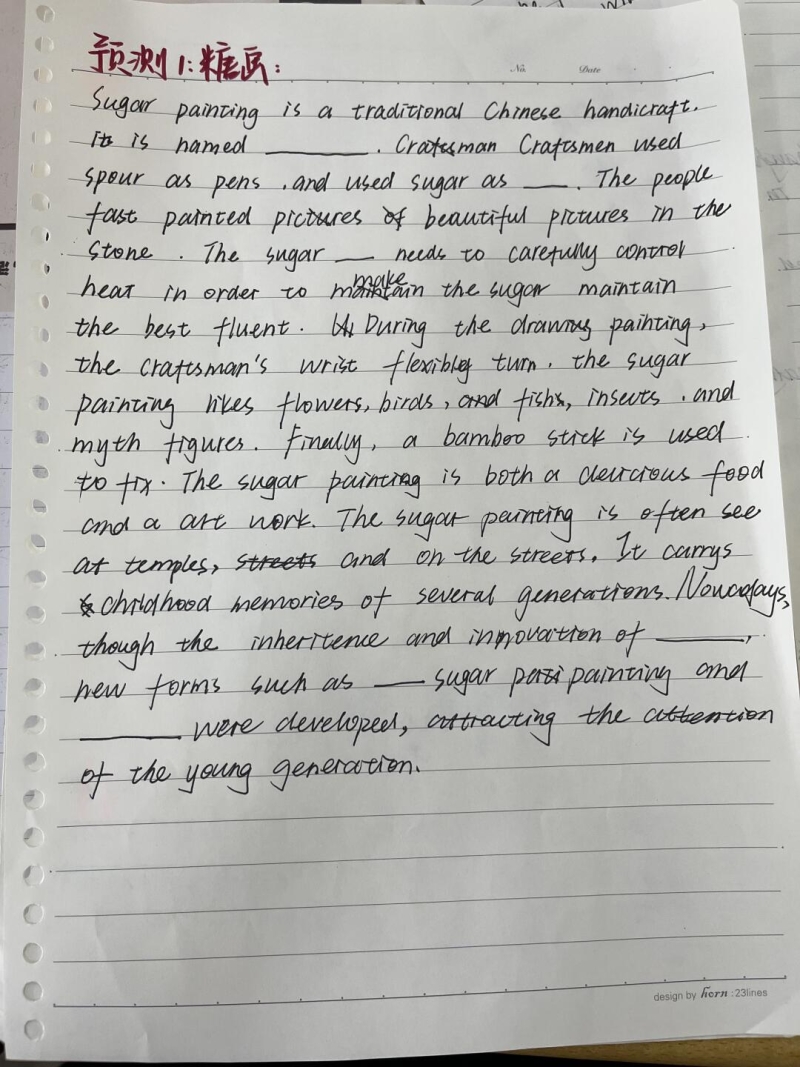 预测1:糖画:
No. Date
Sugar painting is a traditional Chinese handicraft.
It is named ______. Craftsman Craftsmen used
spour as pens, and used sugar as ___. The people
fast painted pictures of beautiful pictures in the
stone. The sugar ___ needs to carefully control
heat in order to make the sugar maintain
the best fluent. During the drawing painting,
the craftsman's wrist flexibley turn. the sugar
painting likes flowers, birds, and fishs, insects, and
myth figures. Finally, a bamboo stick is used
to fix. The sugar painting is both a delicious food
and a art work. The sugar painting is often see
at temples, streets and on the streets. It carrys
childhood memories of several generations. Nowadays,
though the inheritence and innovation of ______,
new forms such as ___ sugar pati painting and
______ were developed, attracting the attention
of the young generation.
design by horn : 23lines